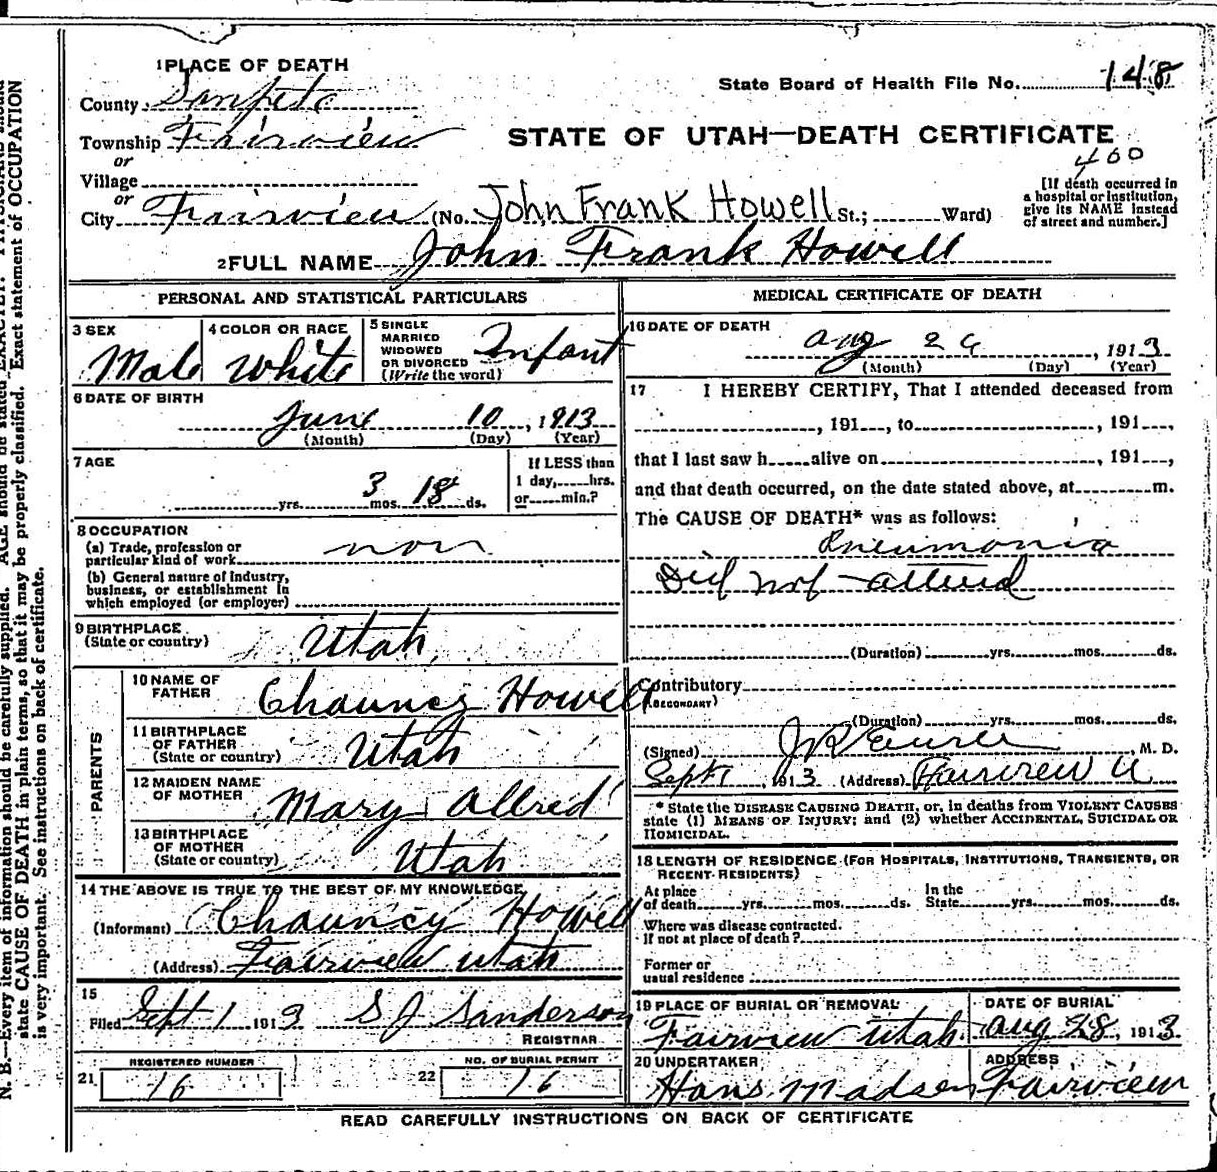 1 PLACE OF DEATH
State Board of Health File No. 148
County Sanpete
Township Fairview
STATE OF UTAH—DEATH CERTIFICATE
400
or
Village
or
City Fairview (No. John Frank Howell St.; Ward)
[If death occurred in
a hospital or institution,
give its NAME instead
of street and number.]
2 FULL NAME John Frank Howell
PERSONAL AND STATISTICAL PARTICULARS
3 SEX
Male
4 COLOR OR RACE
White
5 SINGLE
MARRIED
WIDOWED
OR DIVORCED
(Write the word)
Infant
6 DATE OF BIRTH
June 10, 1913
(Month) (Day) (Year)
7 AGE
yrs. 3 mos. 18 ds.
If LESS than
1 day, hrs.
or min.?
8 OCCUPATION
(a) Trade, profession or
particular kind of work non
(b) General nature of industry,
business, or establishment in
which employed (or employer)
9 BIRTHPLACE
(State or country) Utah
PARENTS
10 NAME OF
FATHER Chauncy Howell
11 BIRTHPLACE
OF FATHER
(State or country) Utah
12 MAIDEN NAME
OF MOTHER Mary Allred
13 BIRTHPLACE
OF MOTHER
(State or country) Utah
14 THE ABOVE IS TRUE TO THE BEST OF MY KNOWLEDGE
(Informant) Chauncy Howell
(Address) Fairview Utah
15
Filed Sept 1 1913 S J Sanderson
REGISTRAR
REGISTERED NUMBER
21 16
NO. OF BURIAL PERMIT
22 16
MEDICAL CERTIFICATE OF DEATH
16 DATE OF DEATH
Aug 26, 1913
(Month) (Day) (Year)
17 I HEREBY CERTIFY, That I attended deceased from
, 191 , to , 191 ,
that I last saw h alive on , 191 ,
and that death occurred, on the date stated above, at m.
The CAUSE OF DEATH* was as follows:
Pneumonia
Did not attend
(Duration) yrs. mos. ds.
Contributory
(SECONDARY)
(Duration) yrs. mos. ds.
(Signed) , M. D.
Sept 1, 1913 (Address) Fairview U
* State the DISEASE CAUSING DEATH, or, in deaths from VIOLENT CAUSES
state (1) MEANS OF INJURY; and (2) whether ACCIDENTAL, SUICIDAL OR
HOMICIDAL.
18 LENGTH OF RESIDENCE (FOR HOSPITALS, INSTITUTIONS, TRANSIENTS, OR
RECENT RESIDENTS)
At place
of death yrs. mos. ds.
In the
State yrs. mos. ds.
Where was disease contracted.
If not at place of death?
Former or
usual residence
19 PLACE OF BURIAL OR REMOVAL
Fairview Utah.
DATE OF BURIAL
Aug 28, 1913
20 UNDERTAKER
Hans Madsen
ADDRESS
Fairview
READ CAREFULLY INSTRUCTIONS ON BACK OF CERTIFICATE
N. B.—Every item of information should be carefully supplied. AGE should be stated EXACTLY. PHYSICIANS should
state CAUSE OF DEATH in plain terms, so that it may be properly classified. Exact statement of OCCUPATION
is very important. See instructions on back of certificate.